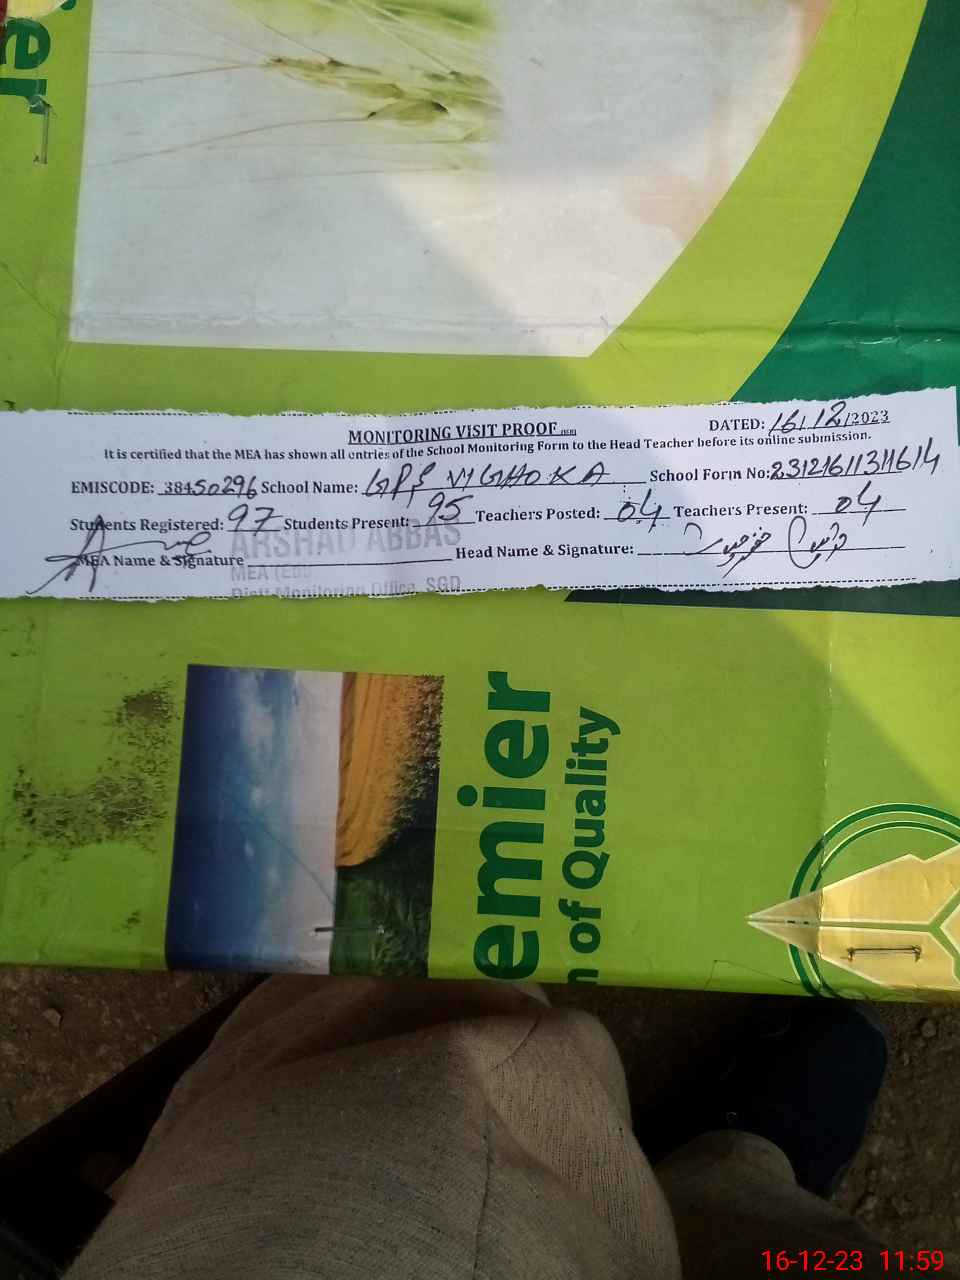 er
MONITORING VISIT PROOF
DATED: 16/12/2023
It is certified that the MEA has shown all entries of the School Monitoring Form to the Head Teacher before its online submission.
EMISCODE: 38450296 School Name: GPS School Form No:
Students Registered: 97 Students Present: 95 Teachers Posted: 04 Teachers Present: 04
ARSHAD ABBAS
MEA Name & Signature Head Name & Signature:
MEA
Distt Monitoring Office, SGD
emier
n of Quality
16-12-23 11:59